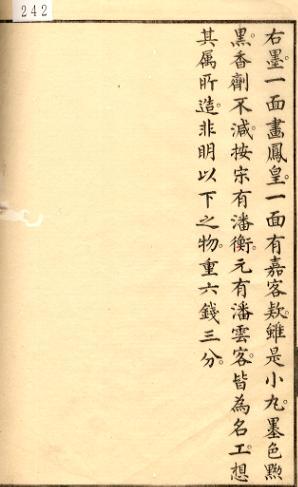 242
右墨一面畫鳳皇。一面有嘉客欵。雖是小丸。墨色黝
黑。香劑不減。按宋有潘衡。元有潘雲客。皆為名工。想
其属所造。非明以下之物。重六錢三分。